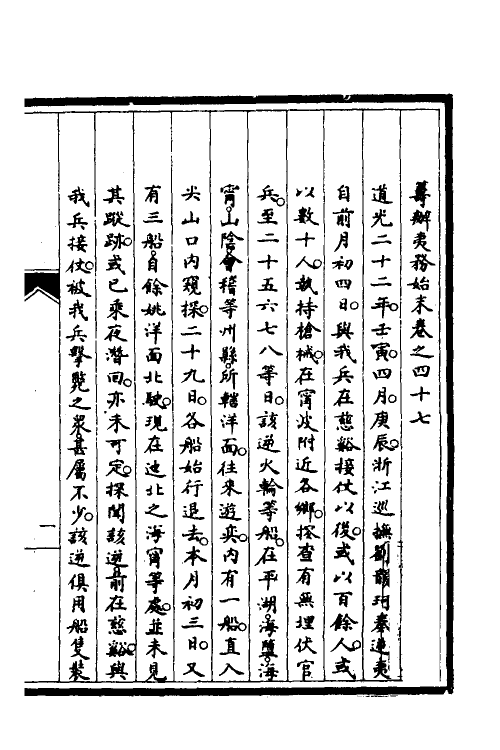 籌辦夷務始末卷之四十七
道光二十二年壬寅。四月。庚辰。浙江巡撫劉韻珂奏。逆夷
自前月初四日。與我兵在慈谿接仗以後。或以百餘人。或
以數十人。執持槍械。在甯波附近各鄉。搜查有無埋伏官
兵。至二十五六七八等日。該逆火輪等船。在平湖。海鹽。海
甯。山陰。會稽等州縣。所轄洋面。往來遊奕。內有一船。直入
尖山口內窺探。二十九日。各船始行退去。本月初三日。又
有三船。自餘姚洋面北駛。現在迤北之海甯等處。並未見
其蹤跡。或已乘夜潛回。亦未可定。探聞該逆。前在慈谿。與
我兵接仗。被我兵擊斃之眾。甚屬不少。該逆俱用船隻裝
一